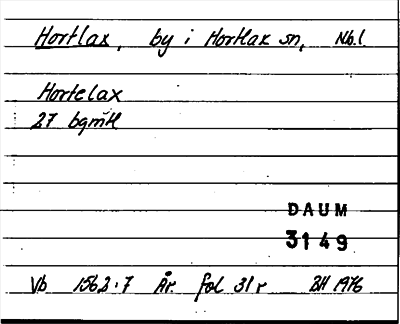 Hortlax, by i Hortlax sn, Nb.l.
Hortelax
27 bgmH
DAUM
3149
Vb 1562:7 År fol 31r BH 1976